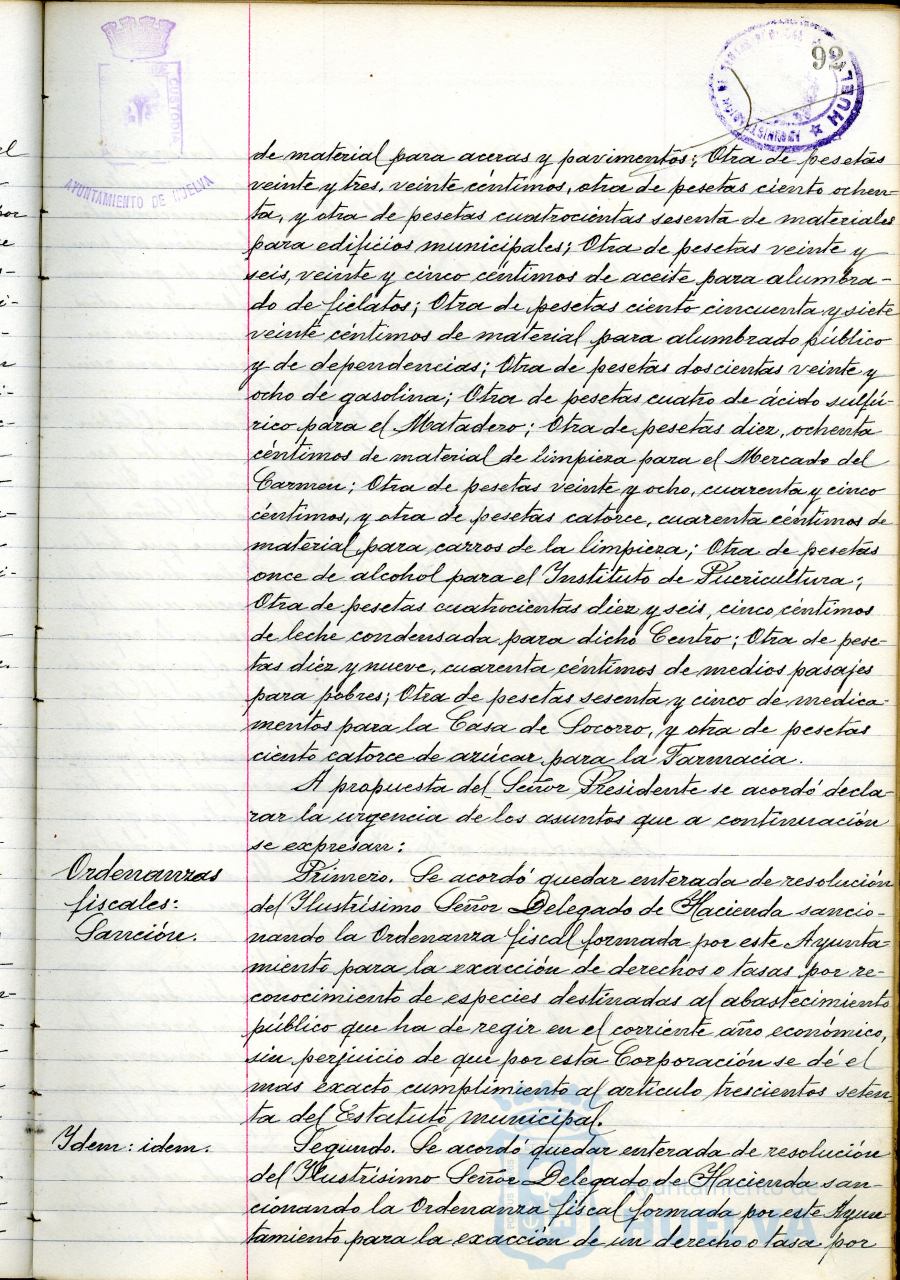 92
CUSTODIA
AYUNTAMIENTO DE HUELVA
HUELVA
de material para aceras y pavimentos; Otra de pesetas
veinte y tres, veinte céntimos, otra de pesetas ciento ochen-
ta, y otra de pesetas cuatrocientas sesenta de materiales
para edificios municipales; Otra de pesetas veinte y
seis, veinte y cinco céntimos de aceite para alumbra-
do de fielatos; Otra de pesetas ciento cincuenta y siete
veinte céntimos de material para alumbrado público
y de dependencias; Otra de pesetas doscientas veinte y
ocho de gasolina; Otra de pesetas cuatro de ácido sulfú-
rico para el Matadero; Otra de pesetas diez, ochenta
céntimos de material de limpieza para el Mercado del
Carmen; Otra de pesetas veinte y ocho, cuarenta y cinco
céntimos, y otra de pesetas catorce, cuarenta céntimos de
material para carros de la limpieza; Otra de pesetas
once de alcohol para el Instituto de Puericultura;
Otra de pesetas cuatrocientas diéz y seis, cinco céntimos
de leche condensada para dicho Centro; Otra de pese-
tas diéz y nueve, cuarenta céntimos de medios pasajes
para pobres; Otra de pesetas sesenta y cinco de medica-
mentos para la Casa de Socorro, y otra de pesetas
ciento catorce de azúcar para la Farmacia.
A propuesta del Señor Presidente se acordó decla-
rar la urgencia de los asuntos que a continuación
se expresan:
Ordenanzas
fiscales:
Sanción.
Primero. Se acordó quedar enterada de resolución
del Ilustrísimo Señor Delegado de Hacienda sancio-
nando la Ordenanza fiscal formada por este Ayunta-
miento para la exacción de derechos o tasas por re-
conocimiento de especies destinadas al abastecimiento
público que ha de regir en el corriente año económico,
sin perjuicio de que por esta Corporación se dé el
mas exacto cumplimiento al artículo trescientos seten-
ta del Estatuto municipal.
Idem: idem.
Segundo. Se acordó quedar enterada de resolución
del Ilustrísimo Señor Delegado de Hacienda san-
cionando la Ordenanza fiscal formada por este Ayun-
tamiento para la exacción de un derecho o tasa por
Ayuntamiento de
HUELVA